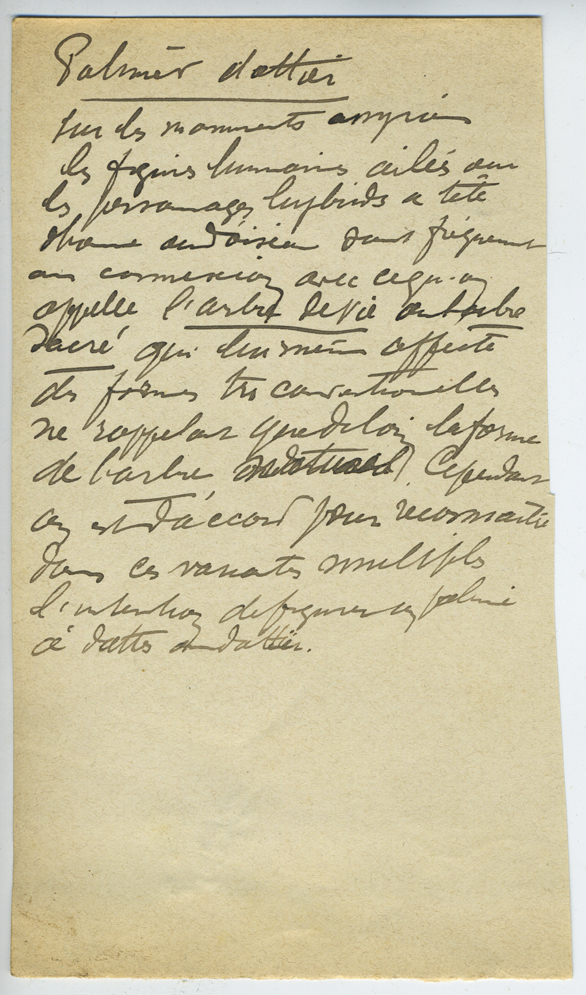 Palmier dattier
Sur les monuments assyriens
les figures humaines ailées ou
les personnages hybrides a tête
d'homme ou d'oiseau sont fréquemment
en connexion avec ce qu'on
appelle l'arbre de vie ou l'arbre
sacré qui lui même affecte
des formes très conventionnelles
ne rappelant que de loin la forme
de l'arbre naturel. Cependant
on est d'accord pour reconnaitre
dans ces variantes multiples
l'intention de figurer un palmier
à dattes ou dattier.